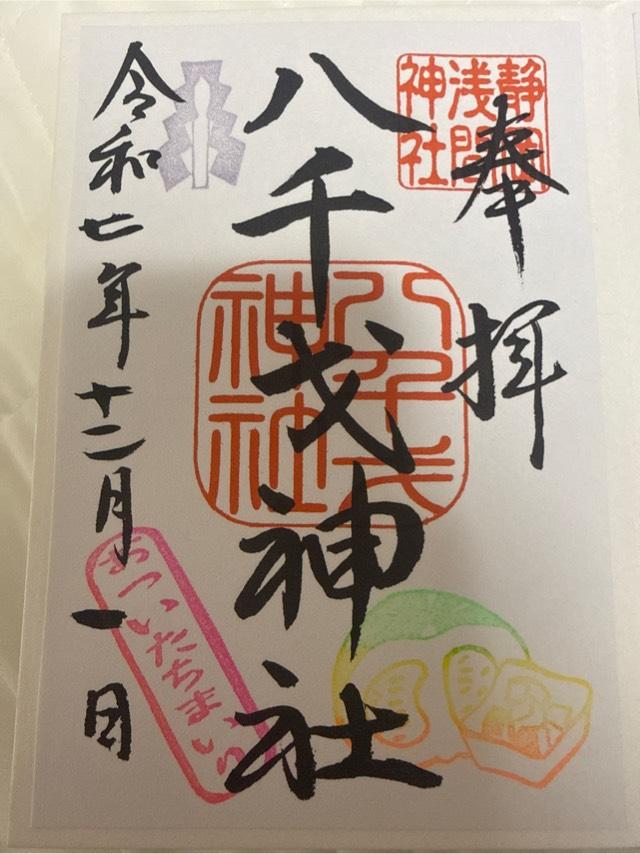 奉拝
静岡
浅間
神社
八千戈神社
八千戈
神社
令和七年十二月一日
おついたちまいり